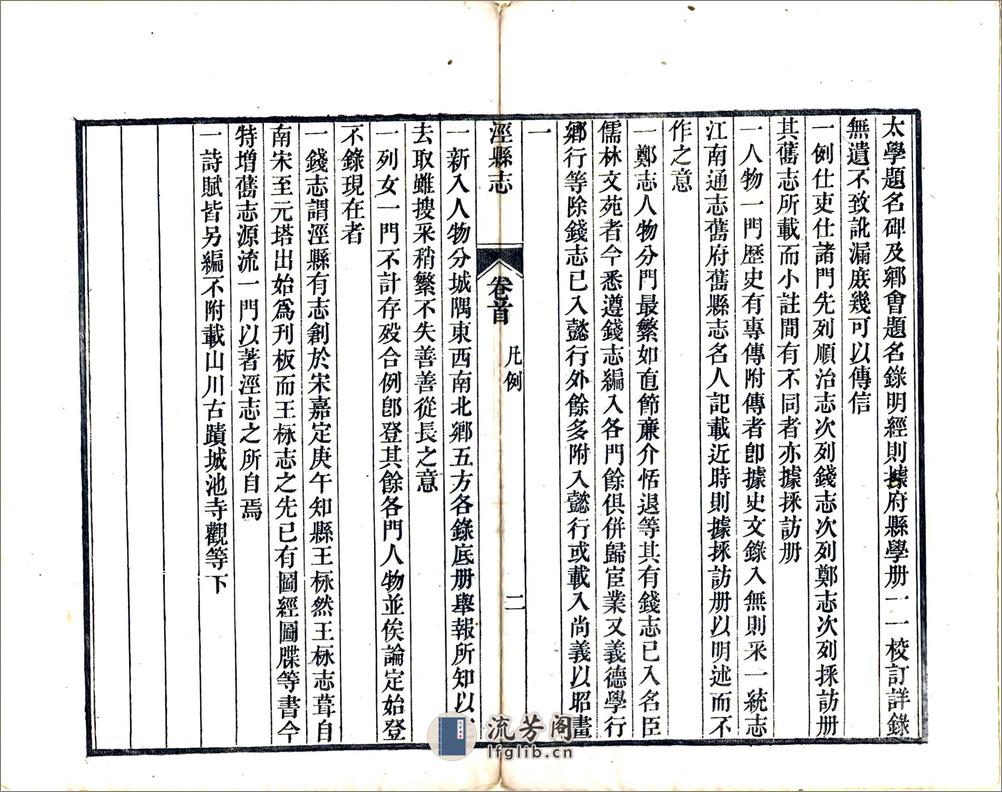 太學題名碑及鄉會題名錄明經則據府縣學册一一校訂詳錄
無遺不致訛漏庶幾可以傳信
一例仕吏仕諸門先列順治志次列錢志次列鄭志次列採訪册
其舊志所載而小註間有不同者亦據採訪册
一人物一門歷史有專傳附傳者卽據史文錄入無則采一統志
江南通志舊府舊縣志名人記載近時則據採訪册以明述而不
作之意
一鄭志人物分門最繁如直節亷介恬退等其有錢志已入名臣
儒林文苑者今悉遵錢志編入各門餘俱併歸宦業又義德學行
鄉行等除錢志已入懿行外餘多附入懿行或載入尚義以昭畫
一
涇縣志
卷首
凡例
二
一新入人物分城隅東西南北鄉五方各錄底册舉報所知以
去取雖搜采稍繁不失善善從長之意
一列女一門不計存殁合例卽登其餘各門人物並俟論定始登
不錄現在者
一錢志謂涇縣有志創於宋嘉定庚午知縣王栐然王栐志葺自
南宋至元塔出始爲刊板而王栐志之先已有圖經圖牒等書今
特增舊志源流一門以著涇志之所自焉
一詩賦皆另編不附載山川古蹟城池寺觀等下
流芳阁
lfglib.cn